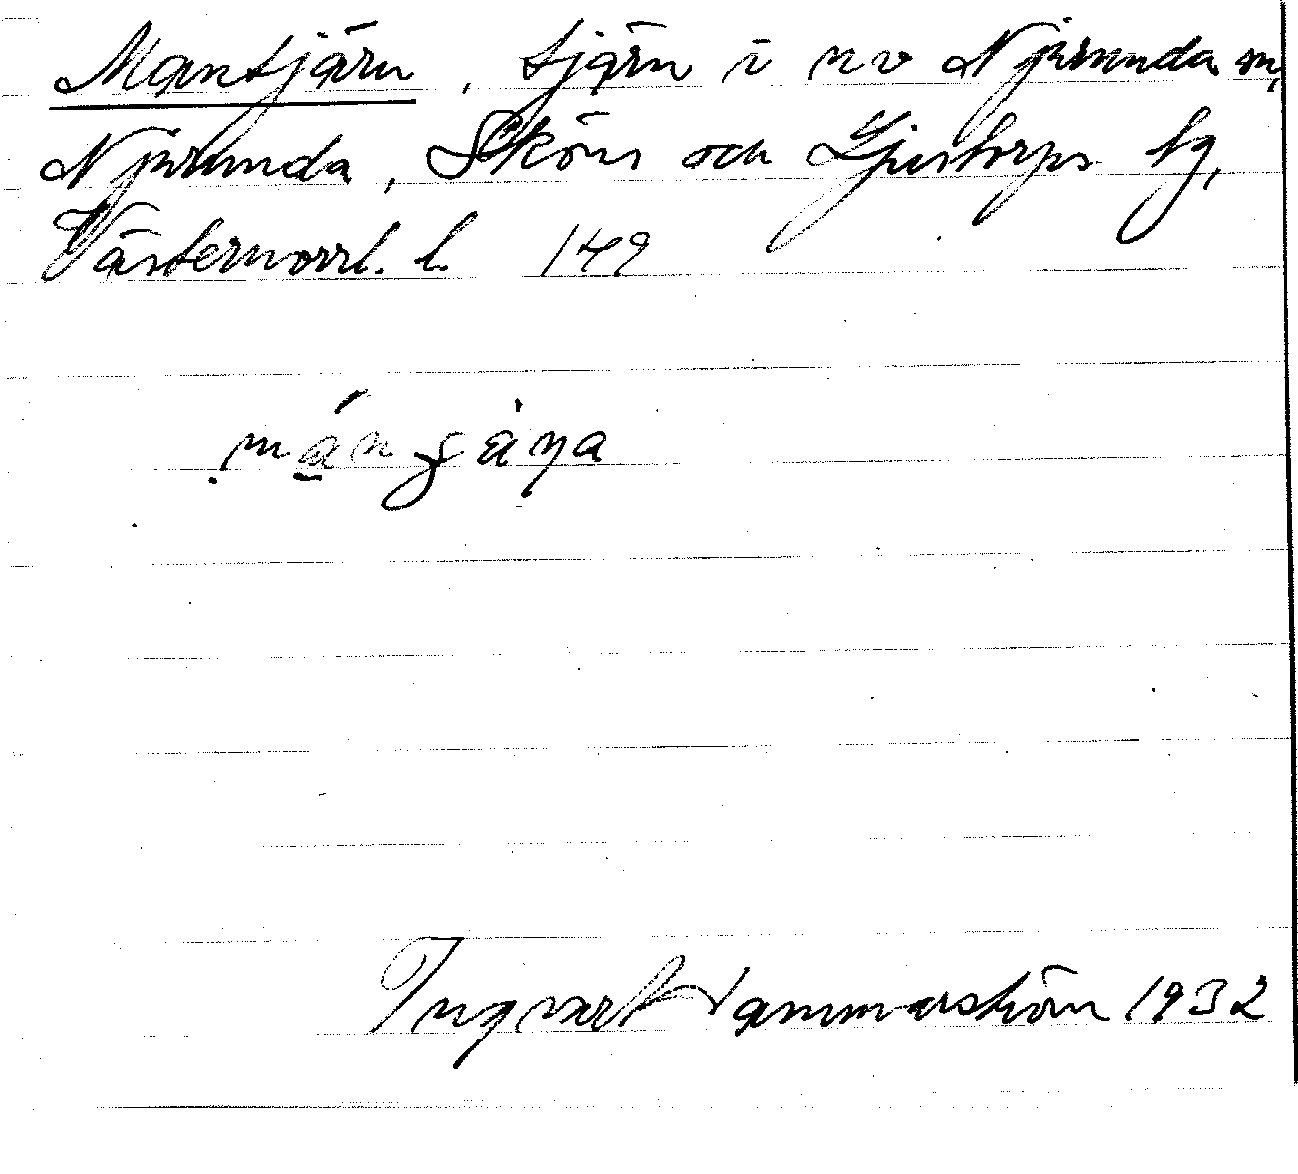 Mantjärn, tjärn i nv Njurunda sn,
Njurunda, Sköns och Ljustorps tg,
Västernorrl. l. 149
Ingvar Hammarström 1932